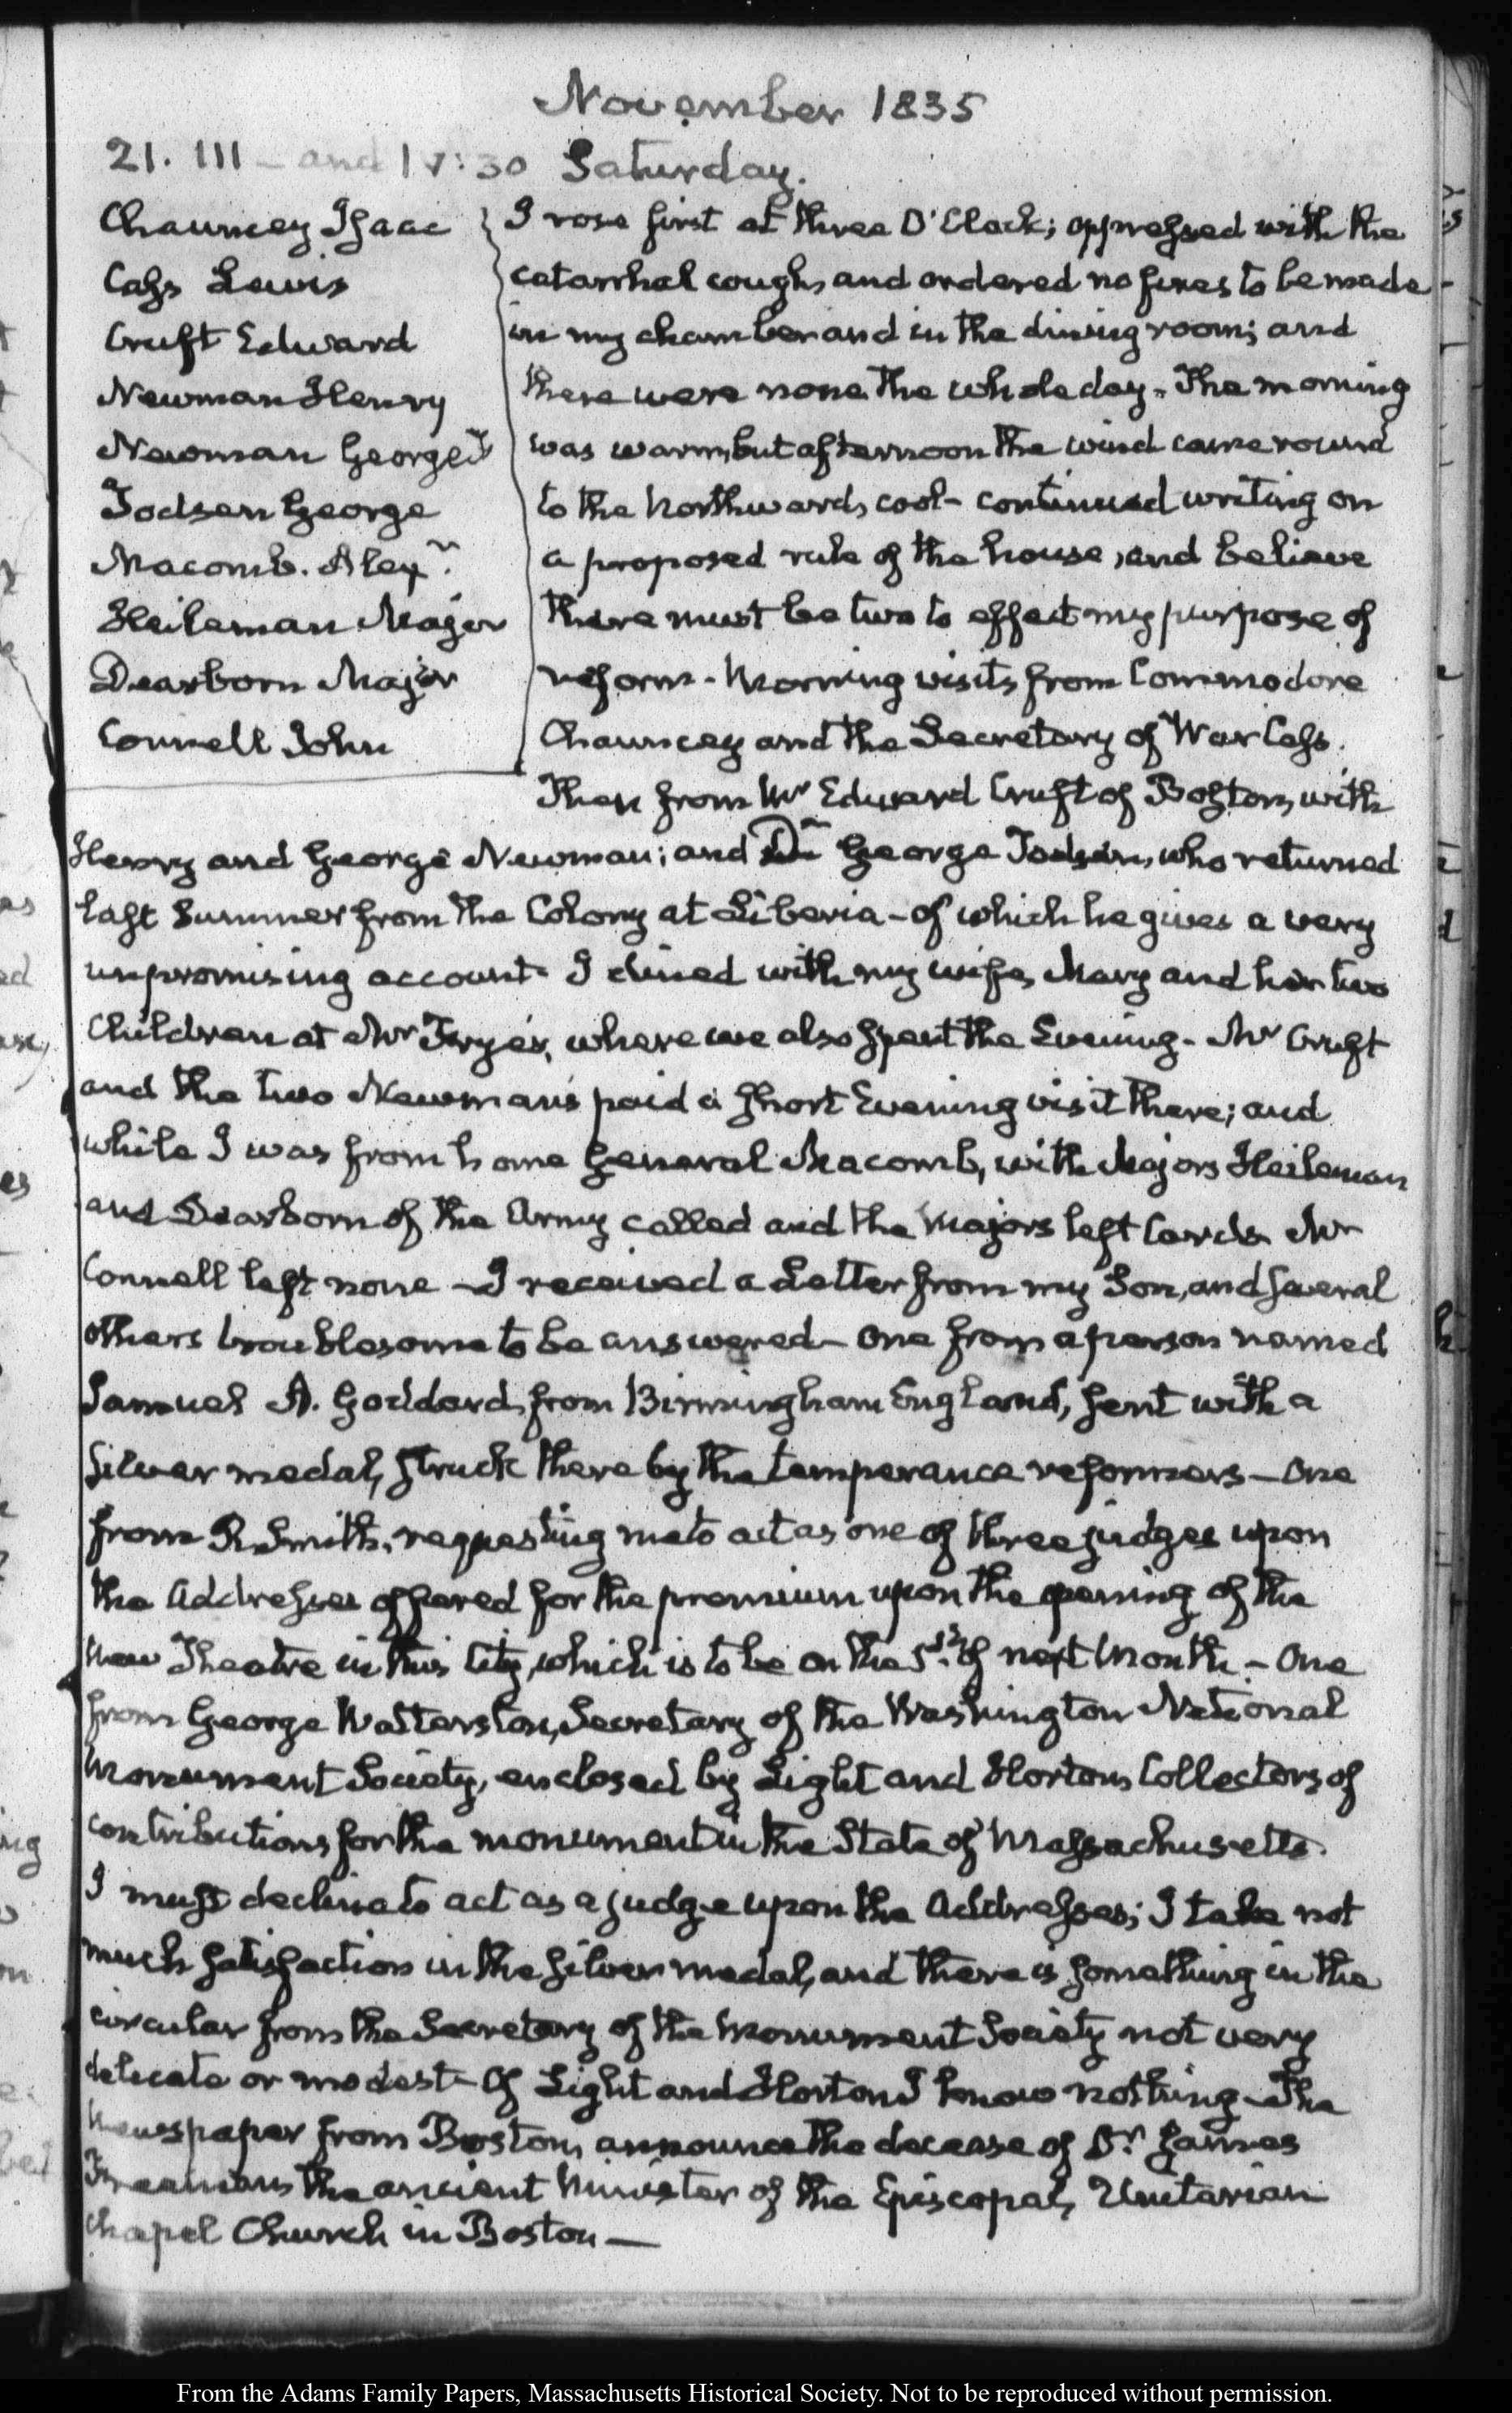 November 1835
21. III – and IV:30 Saturday.
Chauncey Isaac
Cass Lewis
Cruft Edward
Newman Henry
Newman George
Todsen George
Macomb. Alexr.
Heileman Major
Dearborn Major
Connell John
I rose first at three O'Clock; oppressed with the
catarrhal cough, and ordered no fires to be made
in my chamber and in the dining room; and
there were none the whole day. The morning
was warm, but afternoon the wind came round
to the Northward, cool – continued writing on
a proposed rule of the house, and believe
there must be two to effect my purpose of
reform. Morning visits from Commodore
Chauncey and the Secretary of War Cass.
Then from Mr Edward Cruft of Boston, with
Henry and George Newman; and Dr George Todsen, who returned
last Summer from the Colony at Liberia – of which he gives a very
unpromising account. I dined with my wife, Mary and her two
children at Mr Frye's, where we also spent the Evening. Mr Cruft
and the two Newman's paid a short Evening visit there; and
while I was from home General Macomb, with Majors Heileman
and Dearborn of the Army called and the Majors left Cards Mr
Connell left none – I received a Letter from my Son, and several
others troublesome to be answered – One from a person named
Samuel A. Goddard, from Birmingham England, sent with a
silver medal, struck there by the temperance reformers – One
from R. Smith, requesting me to act as one of three judges upon
the Addresses offered for the premium upon the opening of the
new Theatre in this City, which is to be on the of next Month. – One
from George Watterston, Secretary of the Washington National
Monument Society, enclosed by Light and Horton, Collectors of
contributions for the monument in the State of Massachusetts.
I must decline to act as a judge upon the Addresses; I take not
much satisfaction in the silver medal, and there is something in the
circular from the Secretary of the Monument Society not very
delicate or modest – Of Light and Horton I know nothing – The
Newspaper from Boston, announce the decease of Dr. James
Freeman, the ancient Minister of the Episcopal, Unitarian
Chapel Church in Boston —
From the Adams Family Papers, Massachusetts Historical Society. Not to be reproduced without permission.